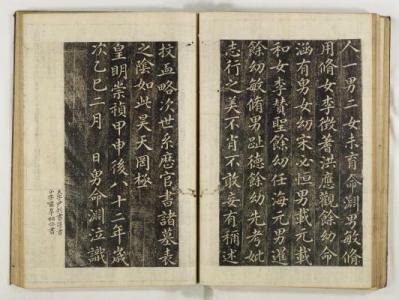 人一男二女未育命淵男敏脩
用脩女李徵耇洪應觀餘幼命
涵有男女幼宋必恒男載元載
和女李贊聖餘幼任海元男暹
餘幼敏脩男趾德餘幼先考妣
志行之美不肖不敢妄有稱述
抆血略次世系歷官書諸墓表
之陰如此昊天罔極
皇明崇禎甲申後八十二年歲
次乙巳二月 日男命淵泣識
大字尹判書淳書